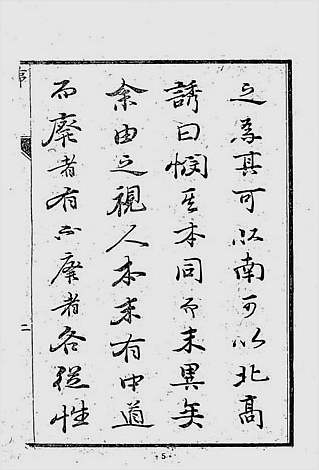 之為其可以南可以北高
誘曰憫其本同而末異矣
余由之視人本末有中道
而廢者有不廢者各從性
序
二
·5·